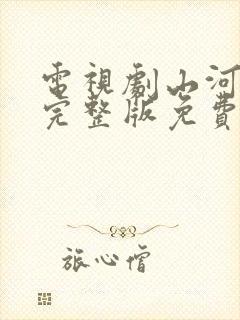 電視劇山河
完整版免費
旅心僧